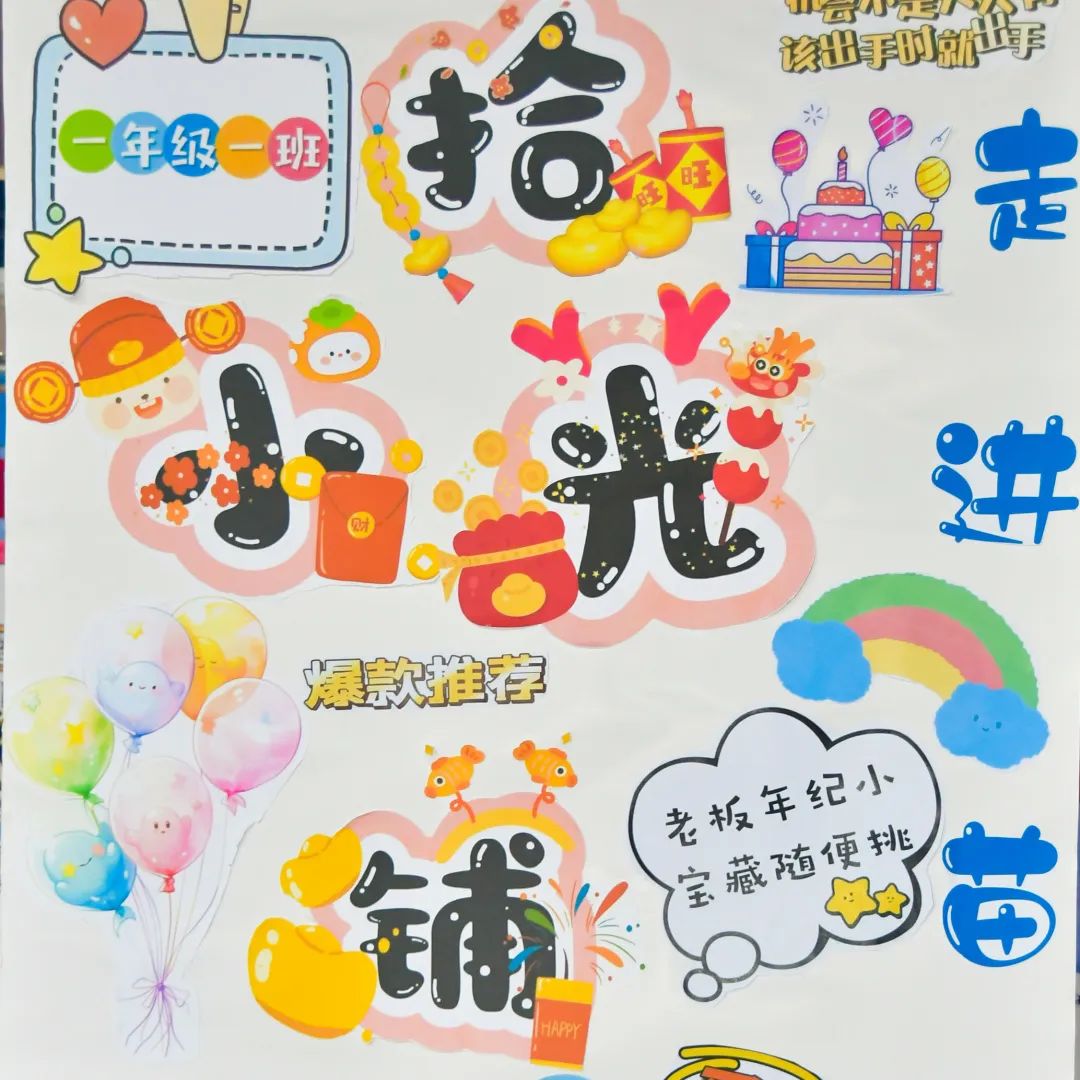 一年级一班
拾
旺
旺
机会不是天天有
该出手时就出手
小光
财
爆款推荐
铺
HAPPY
老板年纪小
宝藏随便挑
走
进
苗